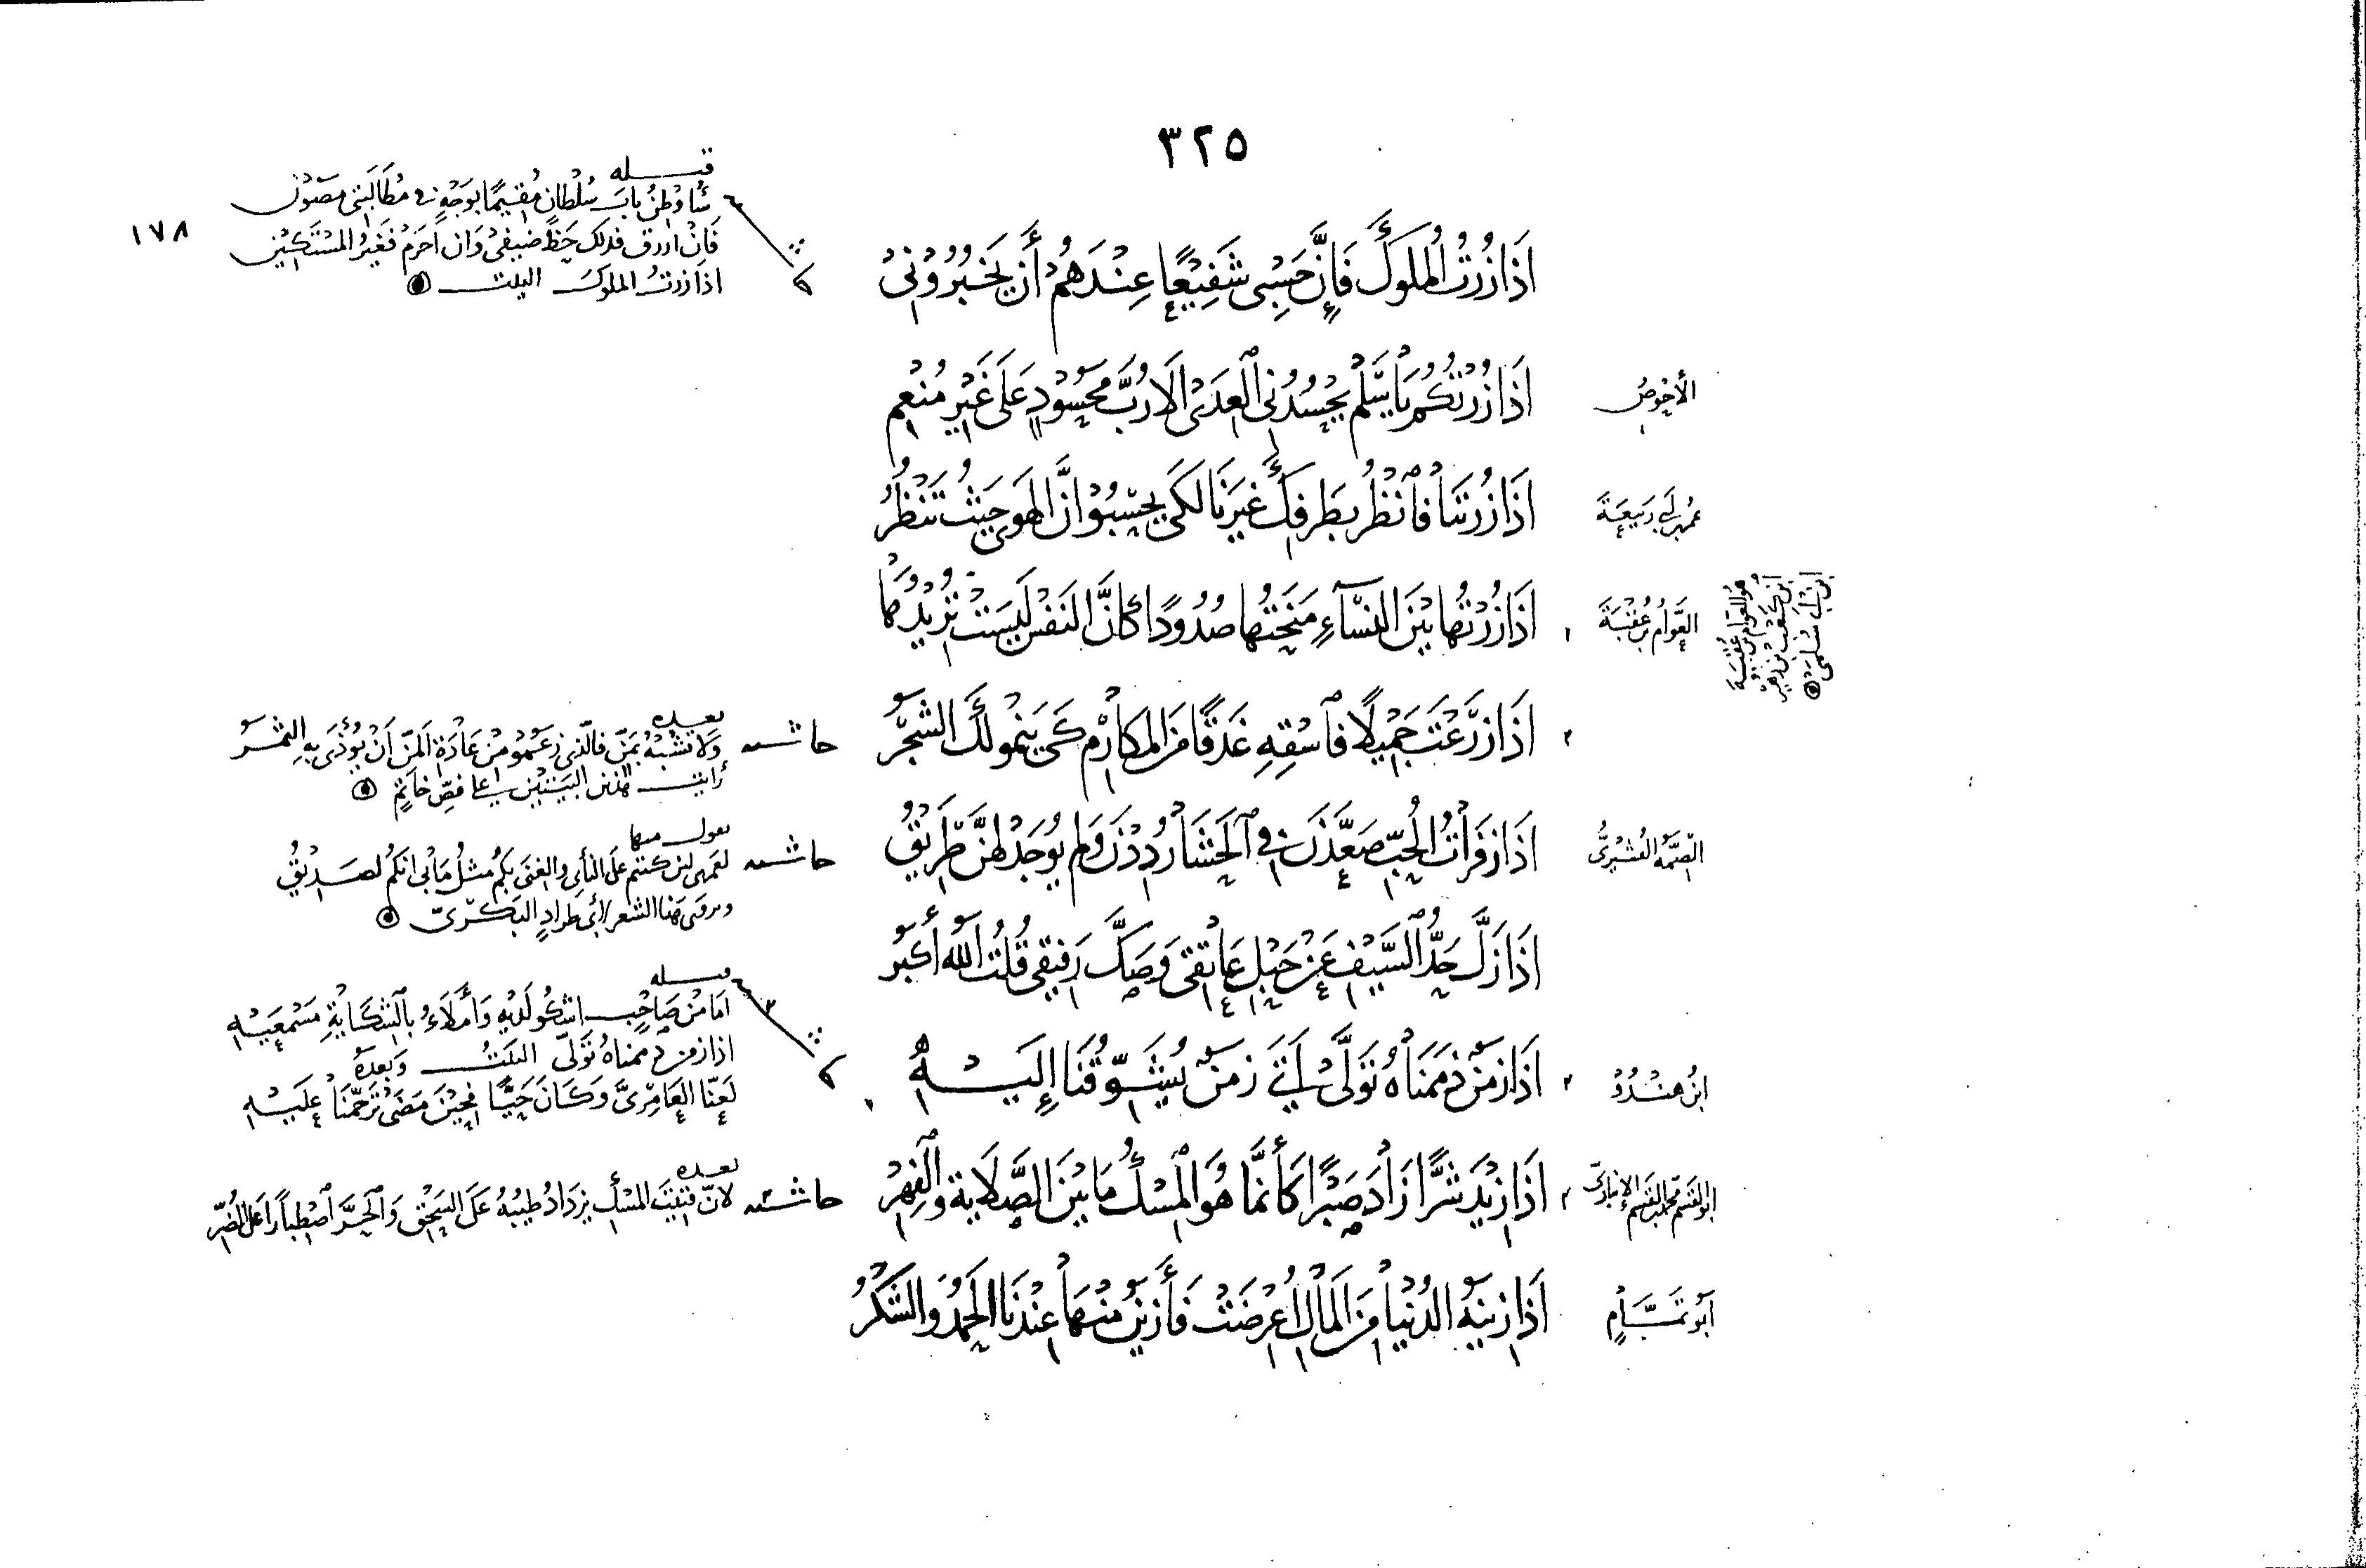 ٣٢٥
١٧٨
إِذَا زُرْتُ الْمُلُوكَ فَإِنَّ حَسْبِي شَفِيْعًا عِنْدَهُمْ أَنْ يَخْبُرُوْنِي
قبله
سأوطن باب سلطان مقيما بوجه في مطالبتي مصون
فان ارزق فذلك حظ ضيفي وان احرم فغير المستكين
اذا زرت الملوك البيت
الأحوص
إِذَا زُرْتُكُمْ يَا سَلْمُ يَحْسُدُنِي الْعِدَى أَلَا رُبَّ مَحْسُوْدٍ عَلَى غَيْرِ مُنْعِمِ
عمر بن أبي ربيعة
إِذَا زُرْتَنَا فَانْظُرْ بِطَرْفِكَ غَيْرَنَا لِكَي يَحْسِبُوْا أَنَّ الْهَوَى حَيْثُ تَنْظُرُ
العوام بن عقبة
هو العوام بن عقبة
ابن كعب بن زهير
ابن أبي سلمى
إِذَا زُرْتُهَا بَيْنَ النِّسَاءِ مَنَحْتُهَا صُدُوْدًا كَأَنَّ النَّفْسَ لَيْسَتْ تُرِيْدُهَا
إِذَا زَرَعْتَ جَمِيْلًا فَاسْقِهِ غَدَقًا مِنَ الْمَكَارِمِ كَي يَنْمُو لَكَ الشَّجَرُ
حاشية
بعده
ولا تشبه بمن فالذي زعموا من عادة المن أن يؤذى به الثمر
رأيت هذين البيتين على فص خاتم
الصمة القشيري
إِذَا زَفَرَاتُ الْحُبِّ صَعَّدْنَ فِي الْحَشَا رُدِدْنَ وَلَمْ يُوْجَدْ لَهُنَّ طَرِيْقُ
حاشية
يقول منها
لعمري لئن كنتم على النأي والغنى بكم مثل ما بي انكم لصديق
ويروى هذا الشعر لأبي طراد البكري
إِذَا زَلَّ حَدُّ السَّيْفِ عَنْ حَبْلِ عَاتِقِي وَصَكَّ رَفِيقِي قُلْتُ اللهُ أَكْبَرُ
ابن هندو
إِذَا زَمَنٌ ذَمَمْنَاهُ تَوَلَّى أَتَى زَمَنٌ يُشَوِّقُنَا إِلَيْهِ
قبله
أما من صاحب اشكو لديه وأملاء بالشكاية مسمعيه
اذا زمن ذممناه تولى البيت وبعده
لعنا العامري وكان حيا فحين مضى ترحمنا عليه
ابو القسم محمد بن القسم الانباري
إِذَا زِيْدَ شَرًّا زَادَ صَبْرًا كَأَنَّمَا هُوَ الْمِسْكُ مَا بَيْنَ الصَّلَايَةِ وَالْفِهْرِ
حاشية
بعده
لأن فتيت المسك يزداد طيبه على السحق والحر اصطبارا على الضر
أبو تمام
إِذَا زِيْنَةُ الدُّنْيَا مِنَ الْمَالِ أَعْرَضَتْ فَأَزْيَنُ مِنْهَا عِنْدَنَا الْحَمْدُ وَالشُّكْرُ